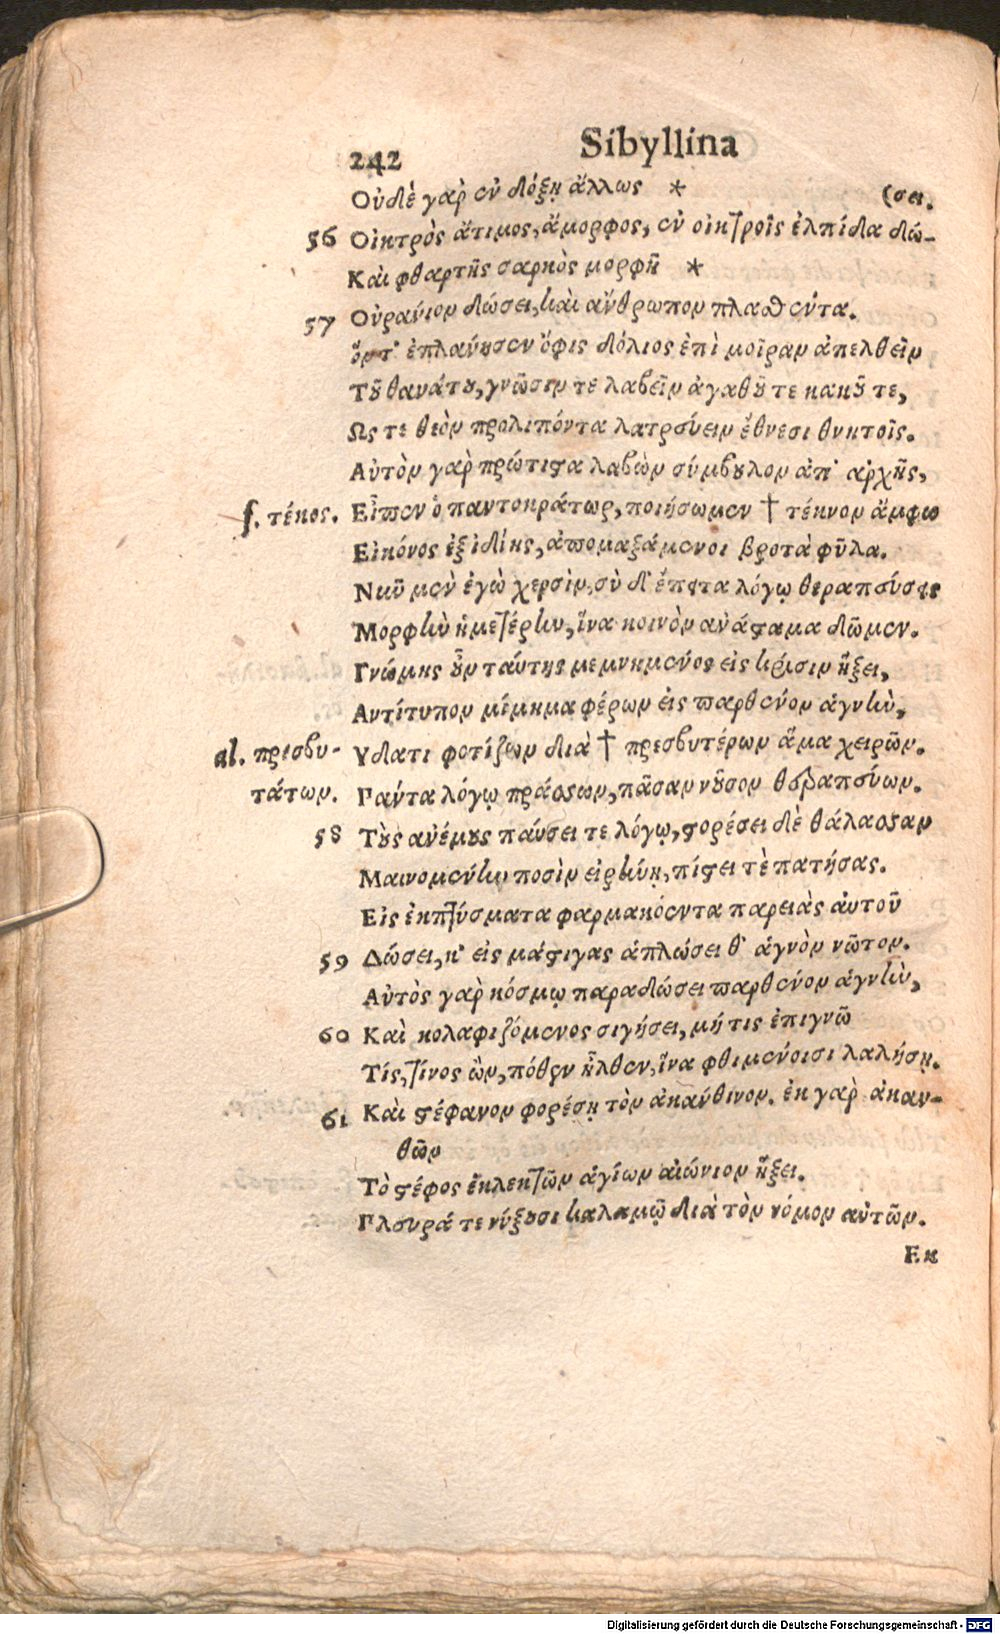 242 Sibyllina
Οὐδὲ γὰρ ἐν δόξῃ ἄλλως * (σει.
56 Οἰκτρὸς ἄτιμος, ἄμορφος, ἐν οἰκτροῖς ἐλπίδα δώ-
Καὶ φθαρτῆς σαρκὸς μορφῇ *
57 Οὐράνιον δώσει, καὶ ἄνθρωπον πλασθέντα.
ὅν τ' ἐπλάνησεν ὄφις δόλιος ἐπὶ μοῖραν ἀπελθεῖν
Τοῦ θανάτου, γνῶσιν τε λαβεῖν ἀγαθοῦ τε κακοῦ τε,
Ως τε θεὸν προλιπόντα λατρεύειν ἔθνεσι θνητοῖς.
Αὐτὸν γὰρ πρώτιστα λαβὼν σύμβουλον ἀπ' ἀρχῆς,
f. τέκος. Εἶπεν ὁ παντοκράτωρ, ποιήσωμεν † τέκνον ἄμφω
Εἰκόνος ἐξ ἰδίης, ἀπομαξάμενοι βροτὰ φῦλα.
Νῦν μὲν ἐγὼ χερσὶν, σὺ δ' ἔπειτα λόγῳ θεραπεύσεις
Μορφὴν ἡμετέρην, ἵνα κοινὸν ἀνάσταμα δῶμεν.
Γνώμης οὖν ταύτης μεμνημένος εἰς κρίσιν ἥξει,
Αντίτυπον μίμημα φέρων εἰς παρθένον ἁγνὴν,
al. πρεσβυ- Υδατι φοτίζων διὰ † πρεσβυτέρων ἅμα χειρῶν.
τάτων. Γάντα λόγῳ πράσσων, πᾶσαν νοῦσον θεραπεύων.
58 Τοὺς ἀνέμους παύσει τε λόγῳ, στορέσει δὲ θάλασσαν
Μαινομένην ποσὶν εἰρήνῃ, πίστει τὲ πατήσας.
Εἰς ἐκπτύσματα φαρμακόεντα παρειὰς ἁυτοῦ
59 Δώσει, κ' εἰς μάστιγας ἁπλώσει θ' ἁγνὸν νῶτον.
Αὐτὸς γὰρ κόσμῳ παραδώσει παρθένον ἁγνὴν,
60 Καὶ κολαφιζόμενος σιγήσει, μή τις ἐπιγνῶ
Τίς, τίνος ὢν, πόθεν ἦλθεν, ἵνα φθιμένοισι λαλήσῃ.
61 Καὶ στέφανον φορέσῃ τὸν ἀκάνθινον. ἐκ γὰρ ἀκαν-
θῶν
Τὸ στέφος ἐκλεκτῶν ἁγίων αἰώνιον ἥξει.
Γλευρά τε νύξουσι καλαμῷ διὰ τὸν νόμον αὐτῶν.
Εκ
Digitalisierung gefördert durch die Deutsche Forschungsgemeinschaft - DFG